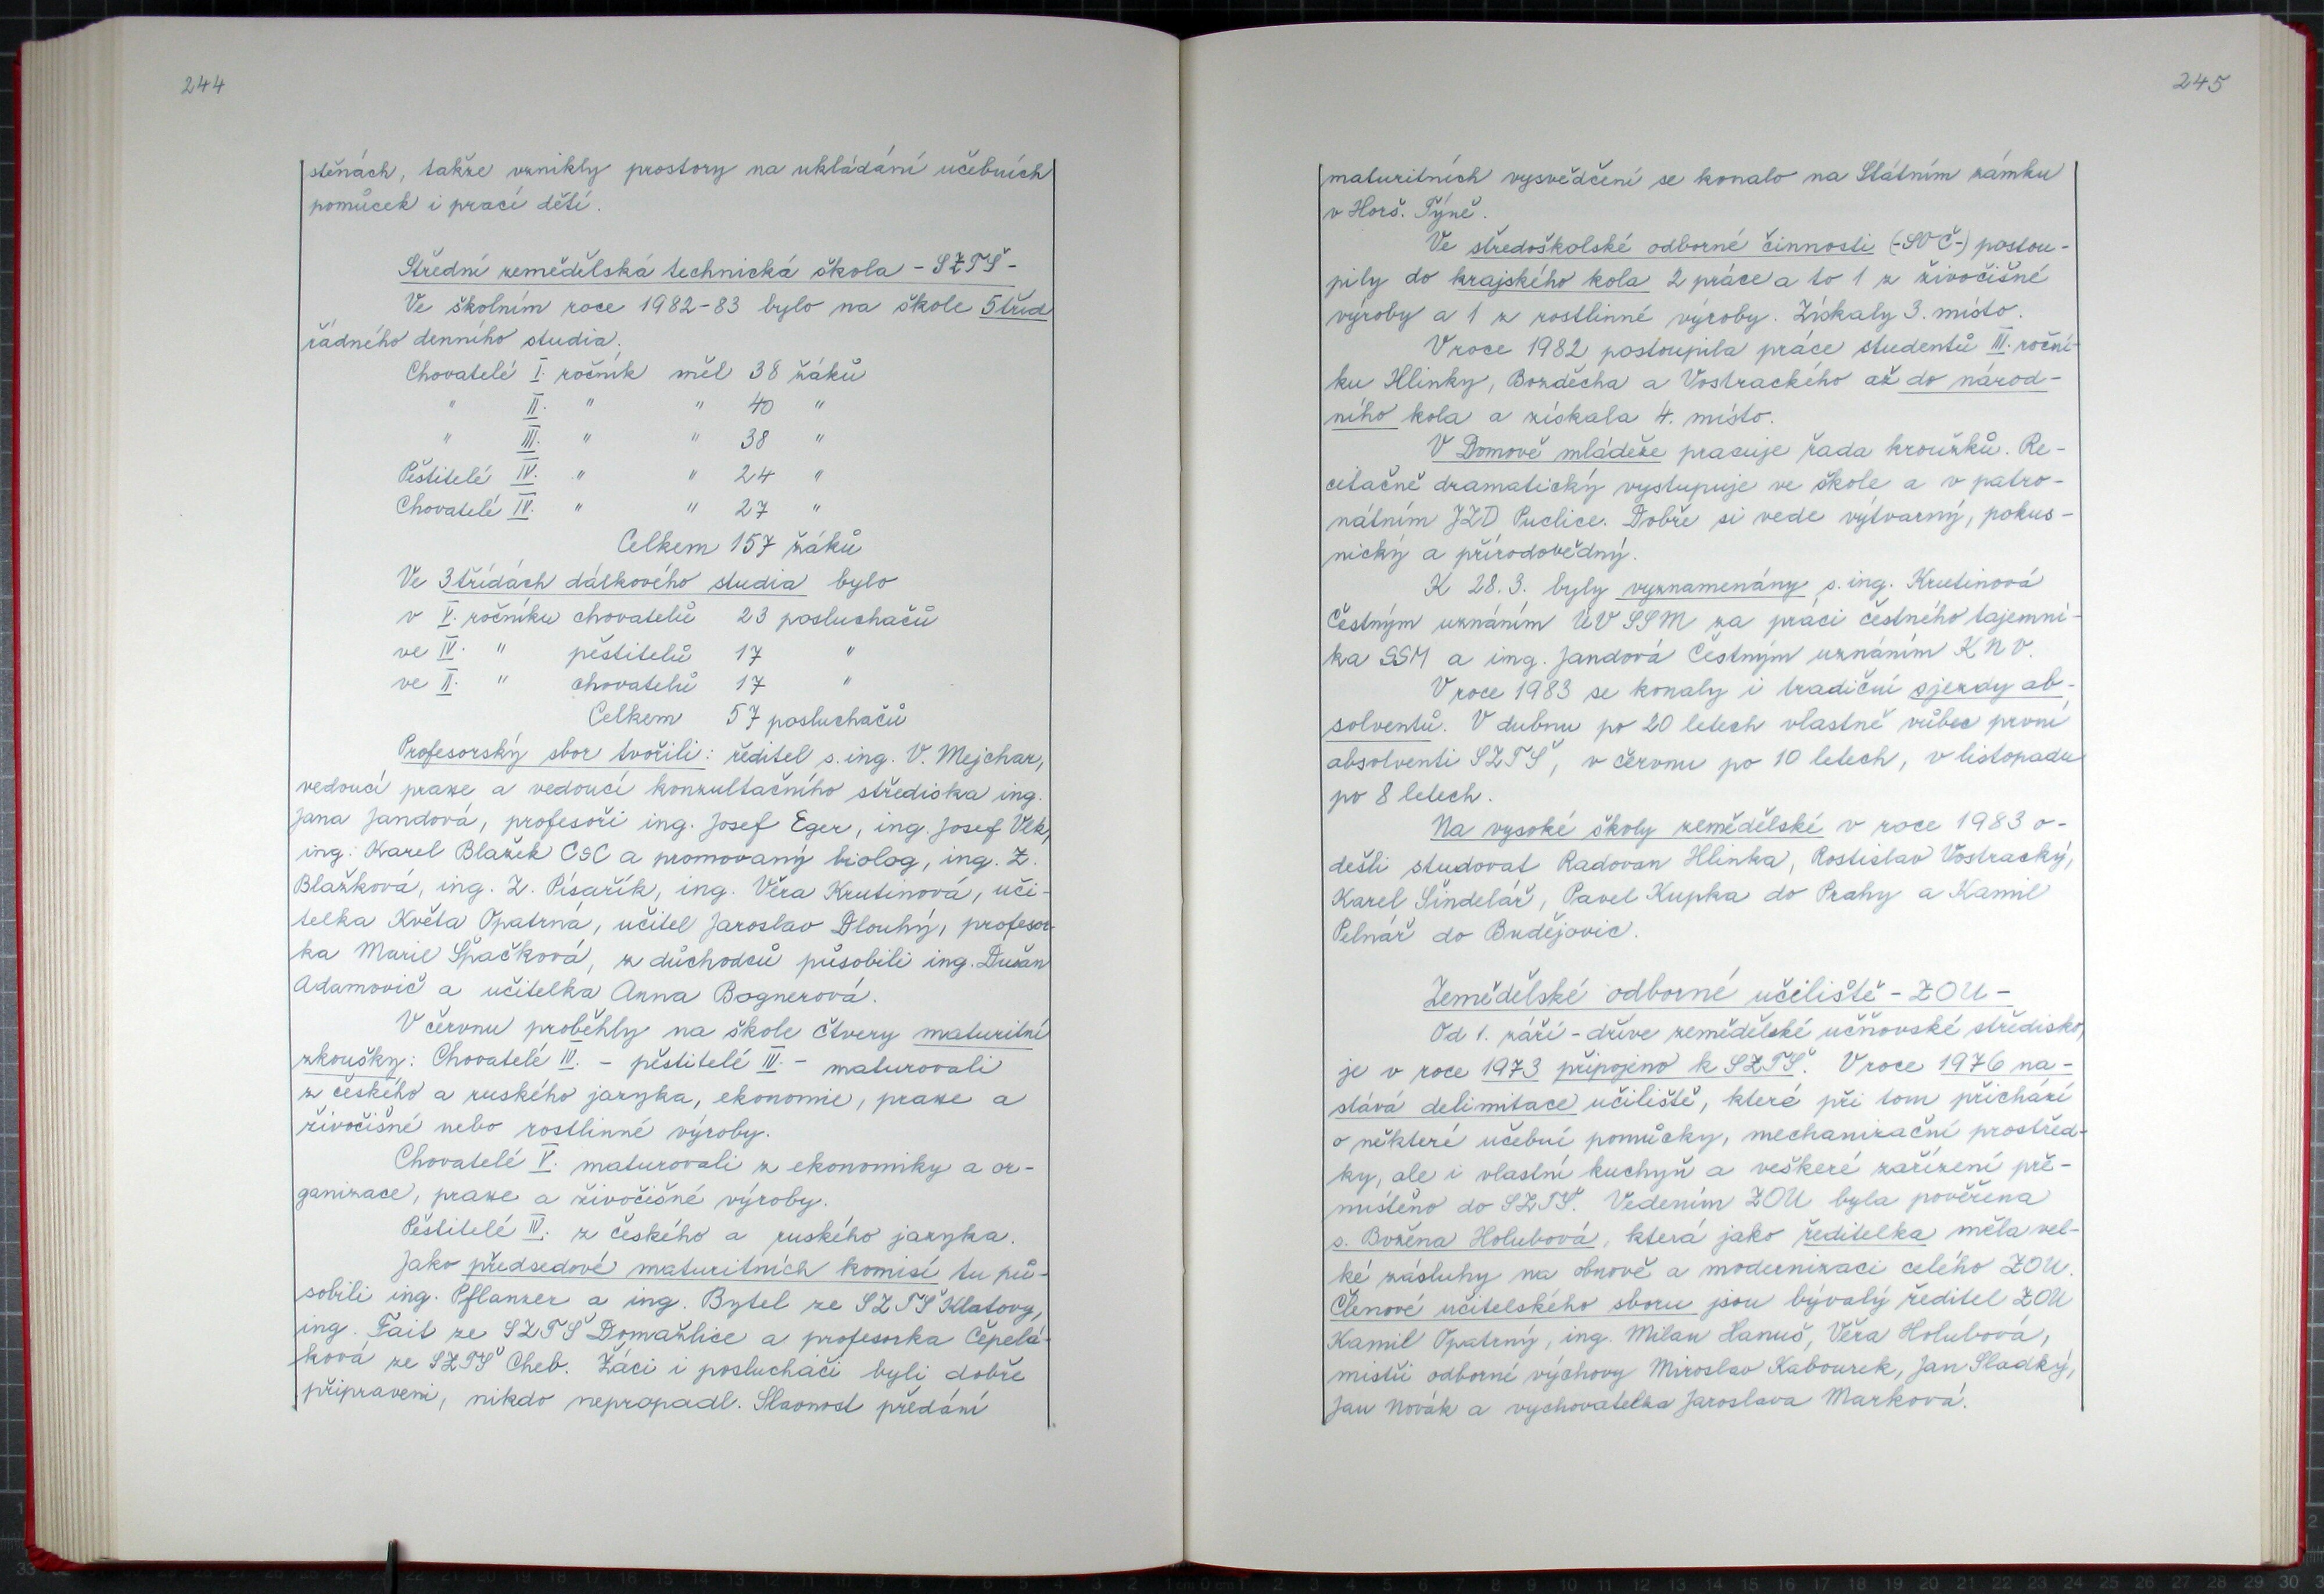 244
stěnách, takže vznikly prostory na ukládání učebních
pomůcek i prací dětí.
Střední zemědělská technická škola - SZTŠ -
Ve školním roce 1982-83 bylo na škole 5 tříd
řádného denního studia.
Chovatelé I. ročník měl 38 žáků
" II. " " 40 "
" III. " " 38 "
Pěstitelé IV. " " 24 "
Chovatelé IV. " " 27 "
Celkem 157 žáků
Ve 3 třídách dálkového studia bylo
v V. ročníku chovatelů 23 posluchačů
ve IV. " pěstitelů 17 "
ve II. " chovatelů 17 "
Celkem 57 posluchačů
Profesorský sbor tvořili: ředitel s. ing. V. Mejchar,
vedoucí praxe a vedoucí konzultačního střediska ing.
Jana Jandová, profesoři ing. Josef Eger, ing. Josef Vlk,
ing. Karel Blažek CSC a promovaný biolog, ing. Z.
Blažková, ing. Z. Písařík, ing. Věra Krutinová, uči-
telka Květa Opatrná, učitel Jaroslav Dlouhý, profesor-
ka Marie Špačková, z důchodců působili ing. Dušan
Adamovič a učitelka Anna Bognerová.
V červnu proběhly na škole čtvery maturitní
zkoušky: Chovatelé IV. - pěstitelé IV. - maturovali
z českého a ruského jazyka, ekonomie, praxe a
živočišné nebo rostlinné výroby.
Chovatelé V. maturovali z ekonomiky a or-
ganizace, praxe a živočišné výroby.
Pěstitelé IV. z českého a ruského jazyka.
Jako předsedové maturitních komisí tu pů-
sobili ing. Pflanzer a ing. Bytel ze SZTŠ Klatovy,
ing. Fait ze SZTŠ Domažlice a profesorka Čepelá-
ková ze SZTŠ Cheb. Žáci i posluchači byli dobře
připraveni, nikdo nepropadl. Slavnost předání
245
maturitních vysvědčení se konalo na Státním zámku
v Horš. Týně.
Ve středoškolské odborné činnosti (-SOČ-) postou-
pily do krajského kola 2 práce a to 1 z živočišné
výroby a 1 z rostlinné výroby. Získaly 3. místo.
V roce 1982 postoupila práce studentů III. roční-
ku Hlinky, Bozděcha a Vostrackého až do národ-
ního kola a získala 4. místo.
V Domově mládeže pracuje řada kroužků. Re-
citačně dramatický vystupuje ve škole a v patro-
nátním JZD Puclice. Dobře si vede výtvarný, pokus-
nický a přírodovědný.
K 28.3. byly vyznamenány s. ing. Krutinová
Čestným uznáním ÚV SSM za práci čestného tajemní-
ka SSM a ing. Jandová Čestným uznáním KNV.
V roce 1983 se konaly i tradiční sjezdy ab-
solventů. V dubnu po 20 letech vlastně vůbec první
absolventi SZTŠ, v červnu po 10 letech, v listopadu
po 8 letech.
Na vysoké školy zemědělské v roce 1983 o-
dešli studovat Radovan Hlinka, Rostislav Vostracký,
Karel Šindelář, Pavel Kupka do Prahy a Kamil
Pelnář do Budějovic.
Zemědělské odborné učiliště - ZOU -
Od 1. září - dříve zemědělské učňovské středisko,
je v roce 1973 připojeno k SZTŠ. V roce 1976 na-
stává delimitace učiliště, které při tom přichází
o některé učební pomůcky, mechanizační prostřed-
ky, ale i vlastní kuchyň a veškeré zařízení pře-
místěno do SZTŠ. Vedením ZOU byla pověřena
s. Božena Holubová, která jako ředitelka měla vel-
ké zásluhy na obnově a modernizaci celého ZOU.
Členové učitelského sboru jsou bývalý ředitel ZOU
Kamil Opatrný, ing. Milan Hanuš, Věra Holubová,
mistři odborné výchovy Miroslav Kabourek, Jan Sladký,
Jan Novák a vychovatelka Jaroslava Marková.